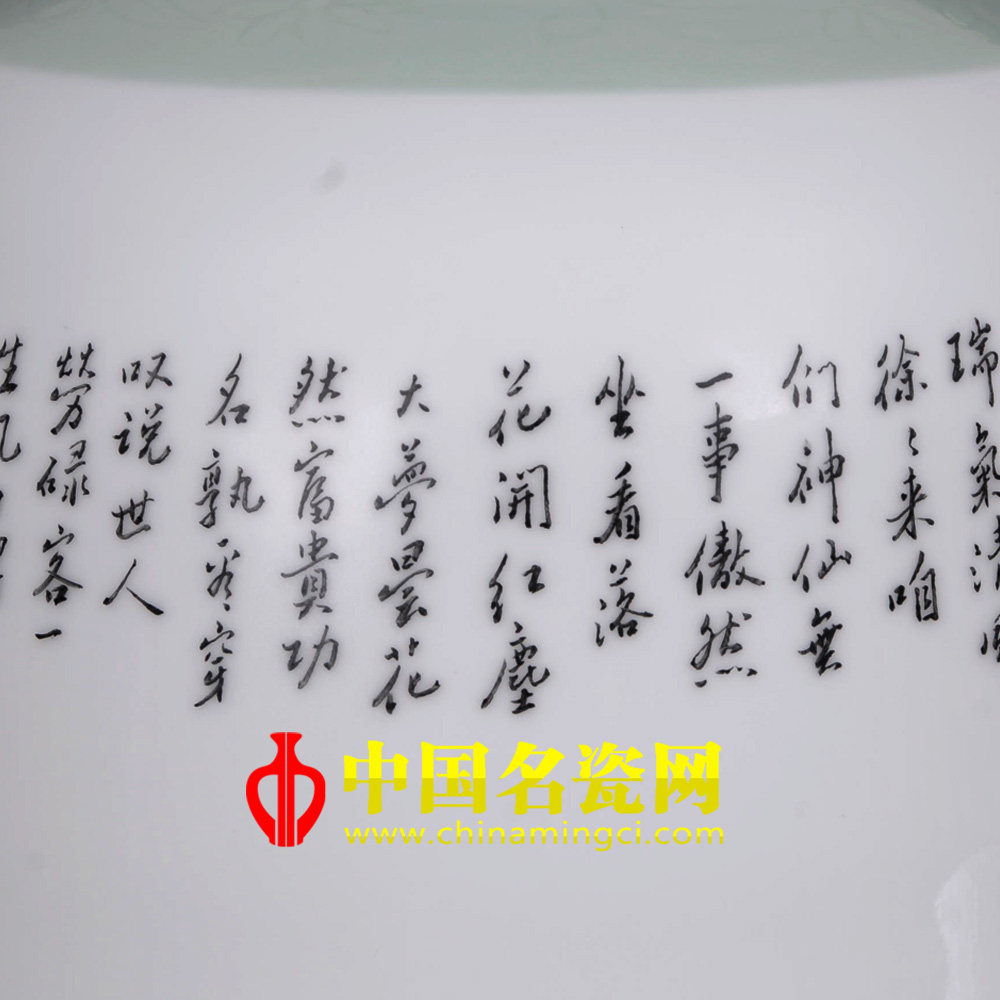 瑞氣清
徐〻来咱
们神仙無
一事傲然
坐看落
花開红塵
大夢曇花
然富貴功
名孰穿
叹说世人
勞碌客一
中国名瓷网
www.chinamingci.com